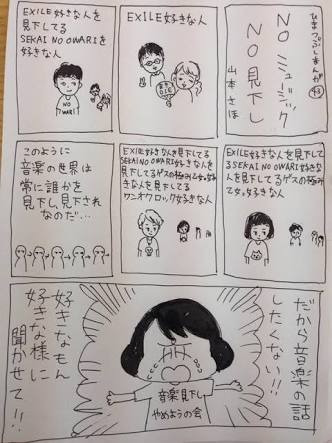 ひまつぶしまんが 43
NOミュージック
NO見下し
山本さほ
EXILE好きな人
EXILE好きな人を
見下してる
SEKAI NO OWARIを
好きな人
NO
WARI
EXILE好きな人を見下して
るSEKAI NO OWARI好きな
人を見下してるゲスの極み
乙女。好きな人
EXILE好きな人を見下してる
SEKAI NO OWARI好きな人
を見下してるゲスの極み乙女。好
きな人を見下してる
ワンオクロック好きな人
このように
音楽の世界は
常に誰かを
見下し、見下され
なのだ…
だから音楽の話
したくない!!
好きなもん
好きな様に
聞かせて!!
音楽見下し
やめようの会